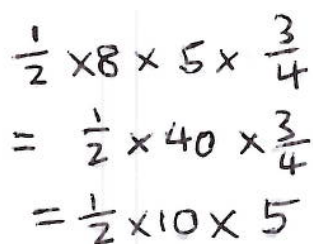 1/2 × 8 × 5 × 3/4
= 1/2 × 40 × 3/4
= 1/2 × 10 × 5